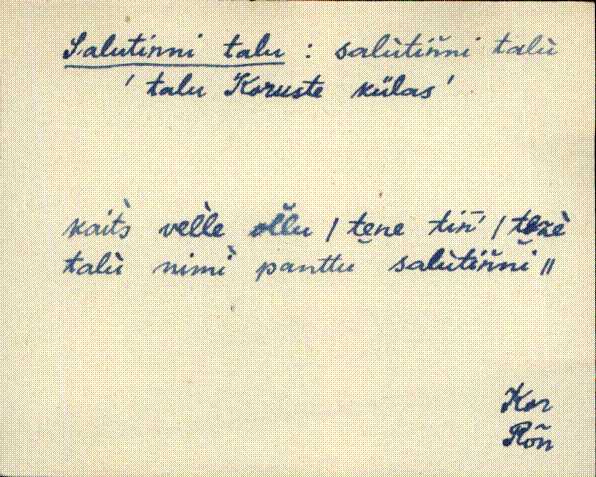 Salutinni talu : salùtiňni talù
' talu Koruste külas '
kaitš velle oľľu / tęne tiń / tęzè
talù nimì panttu salùtiňňi //
Kor
Rõn